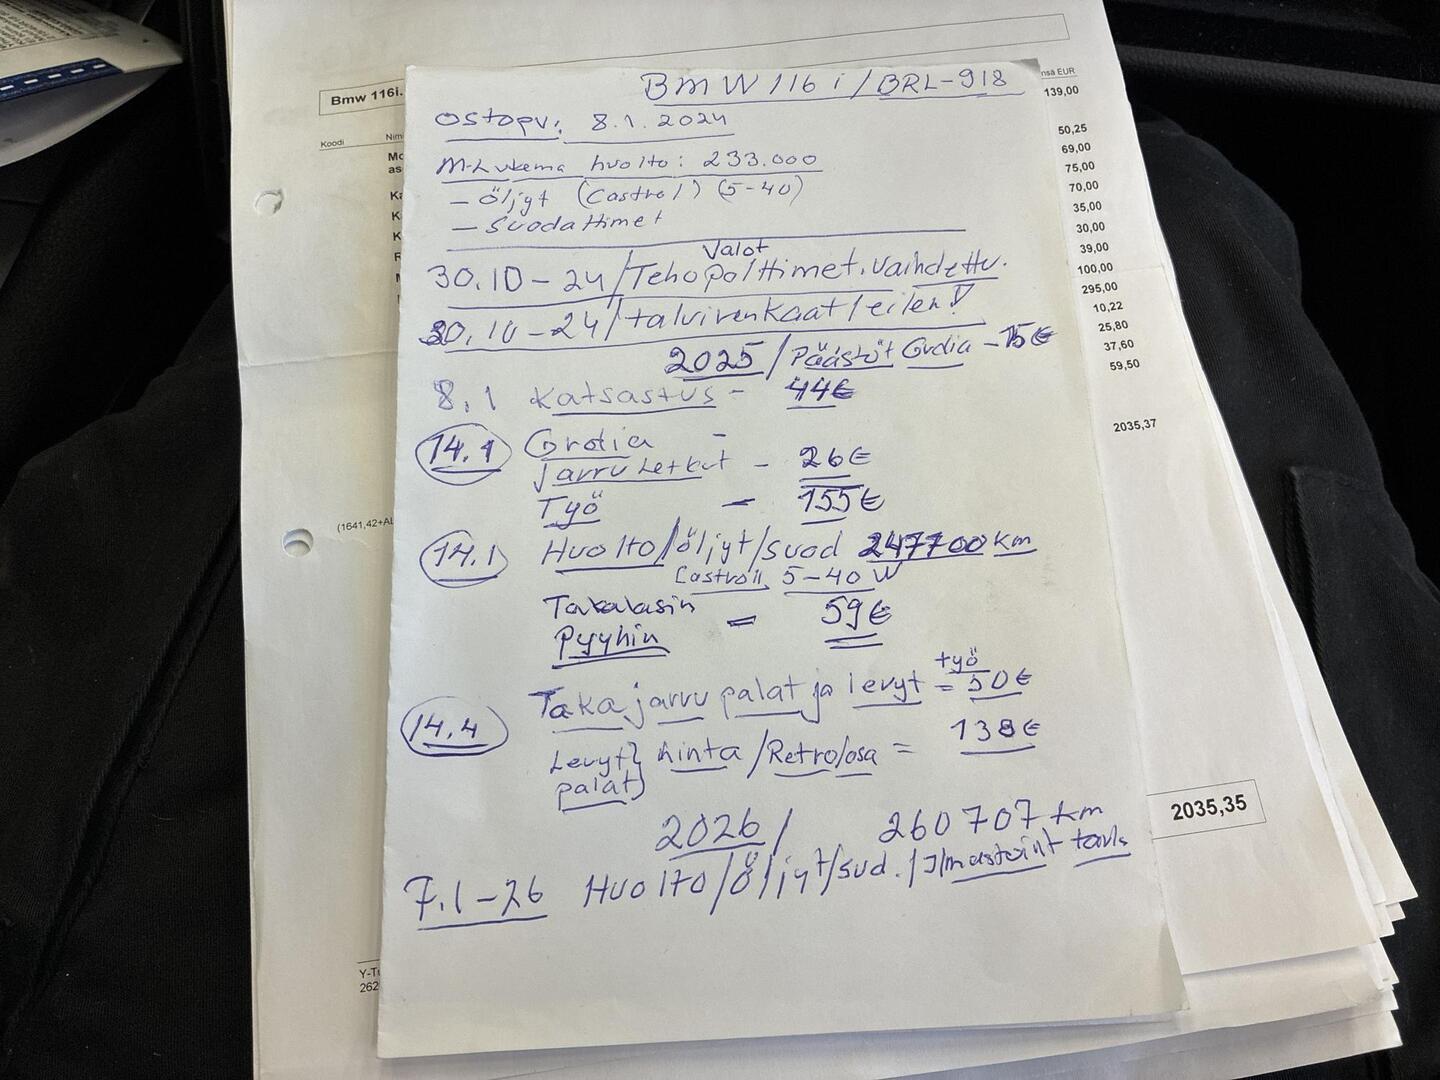 BMW 116 i / BRL-918
Ostopv: 8.1.2024
M-Lukema huolto: 233.000
- öljyt (Castrol) (5-40)
- Suodattimet
Valot
30.10-24/Tehopolttimet. Vaihdettu.
30.10-24/talvirenkaat/eilen!
2025 / Päästöt Grdia - 15€
8.1 Katsastus - 44€
14.1 Grdia -
Jarru Letkut - 26€
Työ - 155€
14.1 Huolto/öljyt/suod 247700 km
Castroil 5-40 W
Takalasin
Pyyhin = 59€
+työ
14.4 Taka jarru palat ja levyt = 50€
Levyt} hinta /Retro/osa = 138€
palat}
2026/ 260707 km
7.1-26 Huolto/öljyt/sud./
Bmw 116i.
Koodi Nim
Mo
as
Ka
K
K
R
(1641,42+AL
Y-Tu
262
nsa EUR
139,00
50,25
69,00
75,00
70,00
35,00
30,00
39,00
100,00
295,00
10,22
25,80
37,60
59,50
2035,37
2035,35